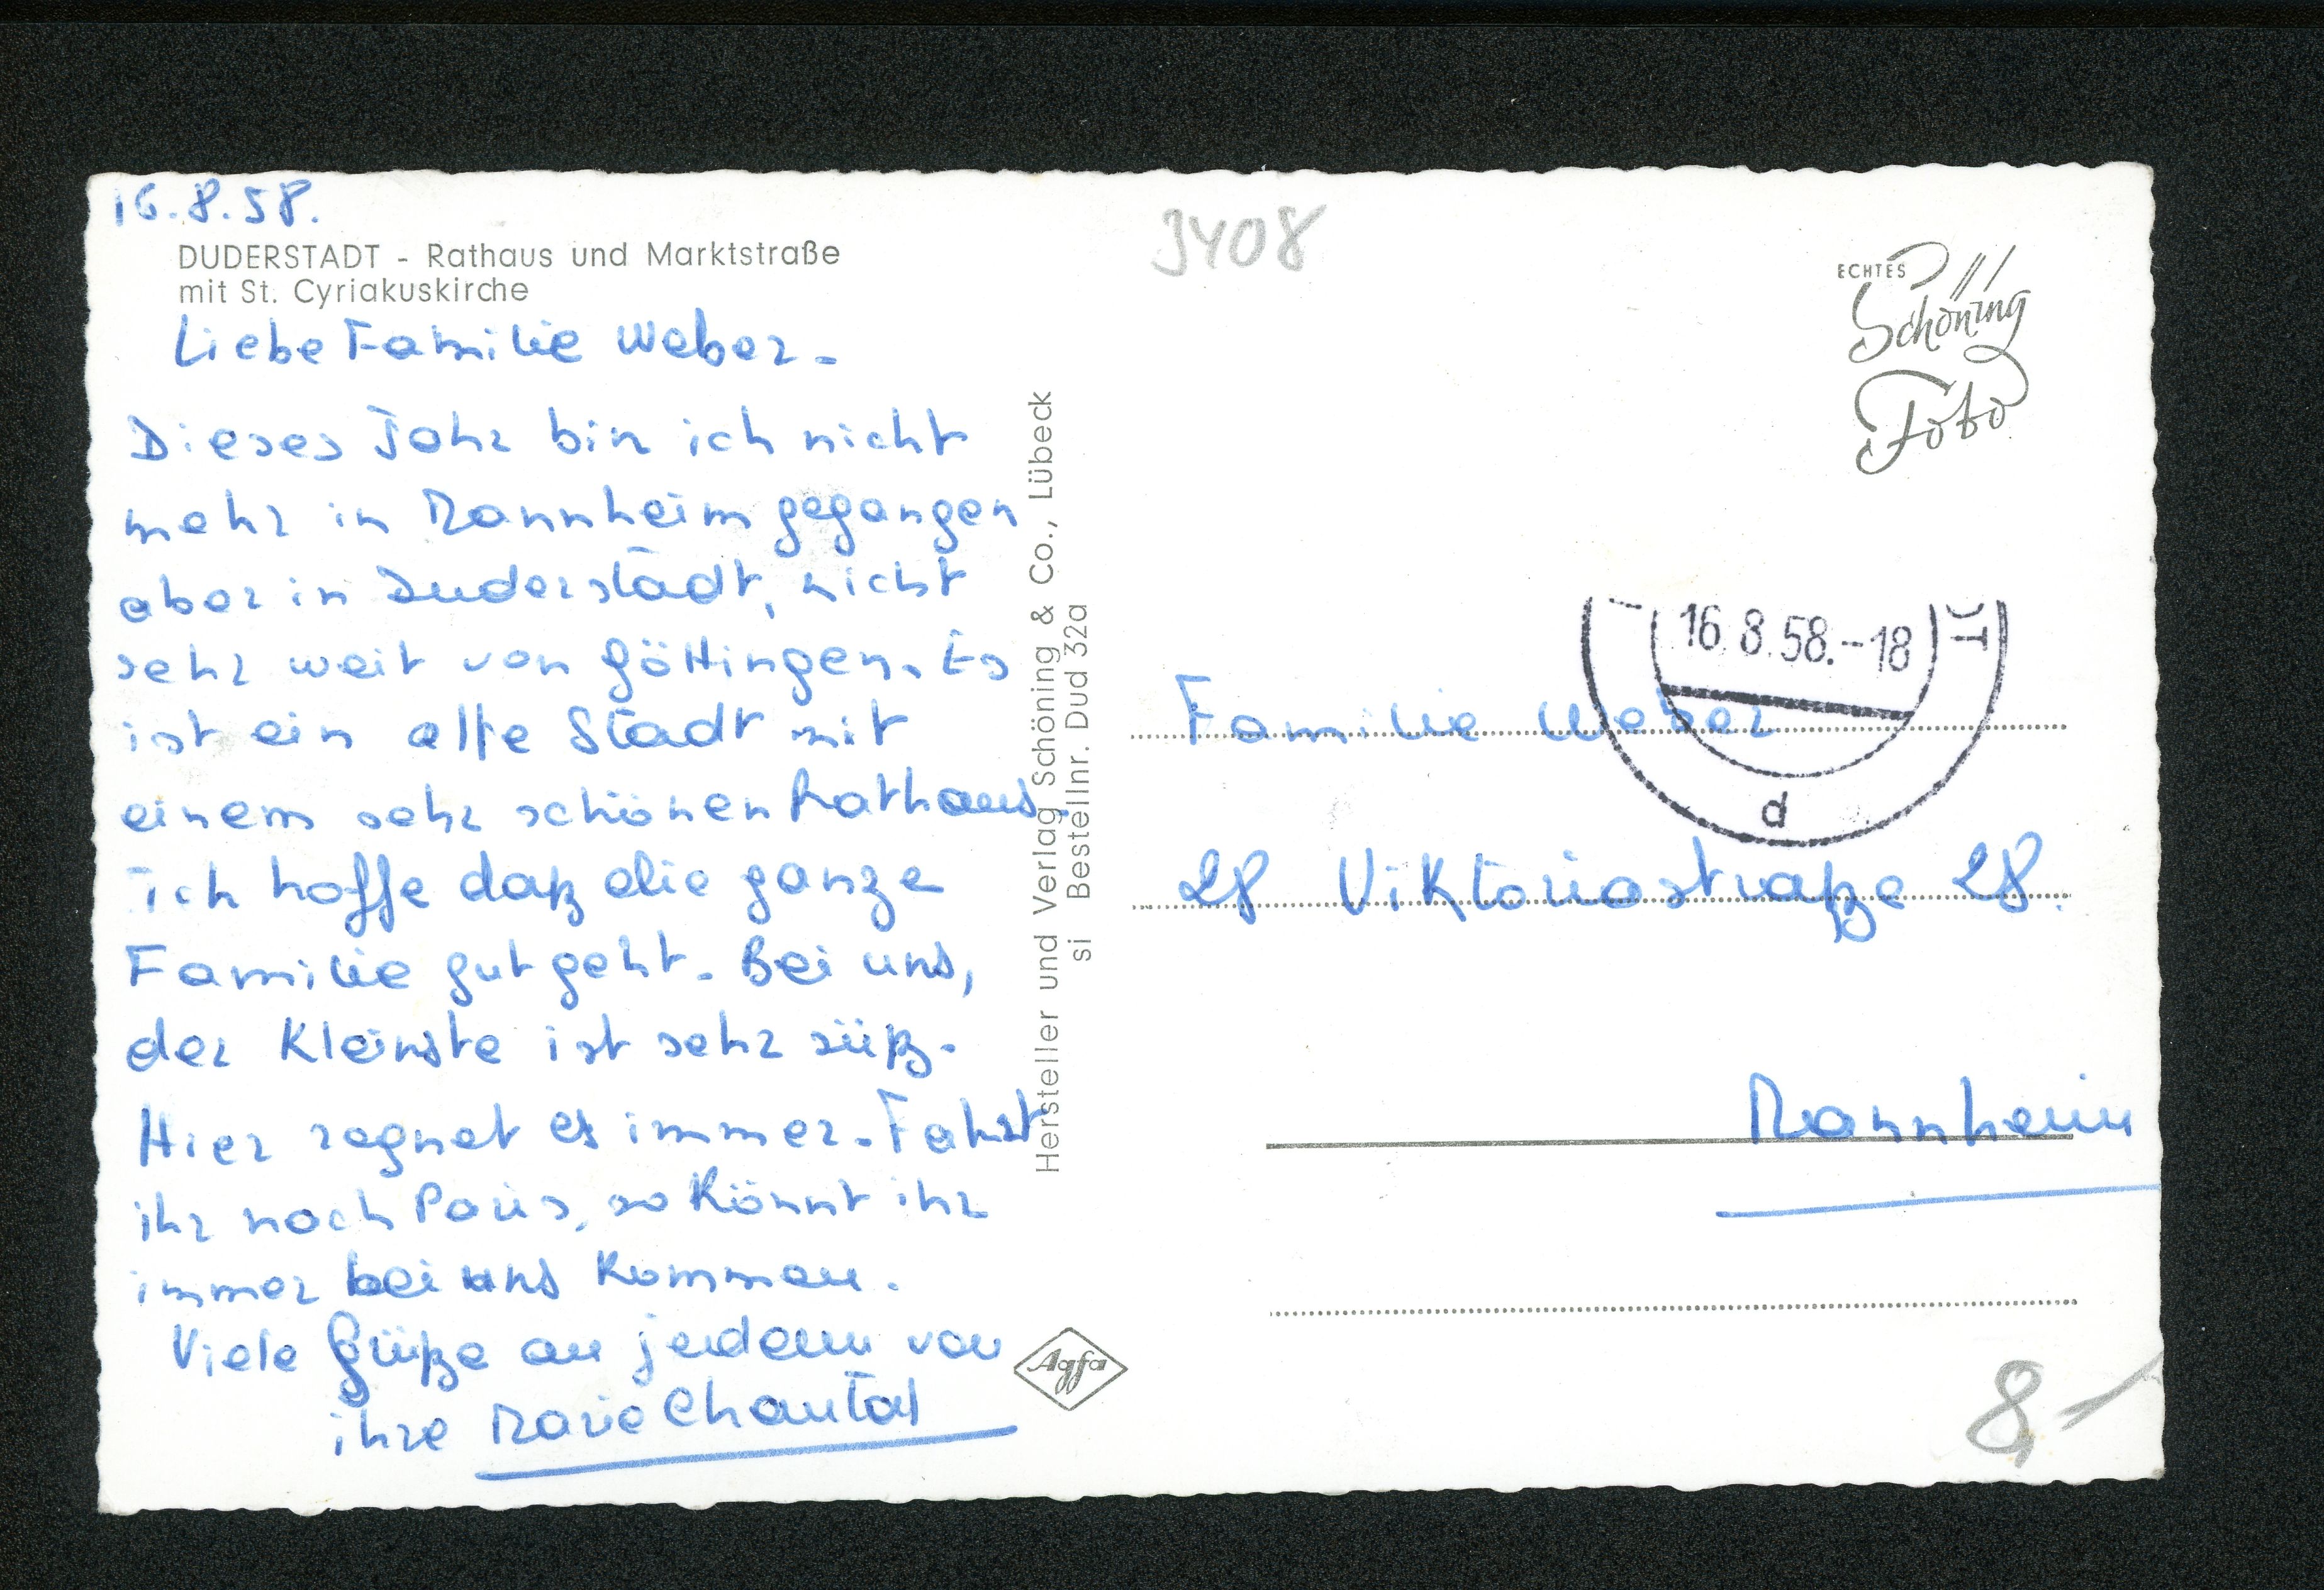 16.8.58.
DUDERSTADT - Rathaus und Marktstraße
mit St. Cyriakuskirche
Liebe Familie Weber -
Dieses Jahr bin ich nicht
mehr in Mannheim gegangen
aber in Duderstadt, nicht
sehr weit von Göttingen. Es
ist ein alte Stadt mit
einem sehr schönen Rathaus.
Ich hoffe daß die ganze
Familie gut geht. Bei uns,
der Kleinste ist sehr süß.
Hier regnet es immer. Fahrt
ihr nach Paris, so könnt ihr
immer bei uns kommen.
Viele Grüße an jedem von
ihre Marie Chantal
Hersteller und Verlag Schöning & Co., Lübeck
si Bestellnr. Dud 32a
Agfa
3408
ECHTES
Schöning
Foto
16.8.58.-18
DT
d
Familie Weber
28 Viktoriastraße 28.
Mannheim
8,-